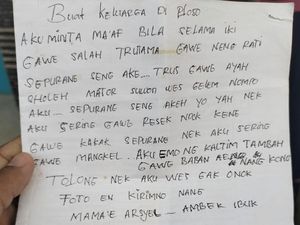 BUWAT KELUARGA DI PLOSO
AKU MINTA MA'AF BILA SELAMA IKI
GAWE SALAH TRUTAMA GAWE NENG RATI
SEPURANE SENG AKE... TRUS GAWE AYAH
SHOLEH MATOR SUWON WES GELEM NOMPO
AKU... SEPURANE SENG AKEH YO YAH NEK
AKU SERING GAWE RESEK NROK KENE
GAWE KAKAK SEPURANE NEK AKU SERING
GAWE MANGKEL.. AKU EMONG KALTIM TAMBAH
GAWE BABAN NANG KONO
TOLONG NEK AKU WES GAK ONOK
FOTO EN KIRIMNO NANG
MAMA'E ARSYEL... AMBEK IBUK